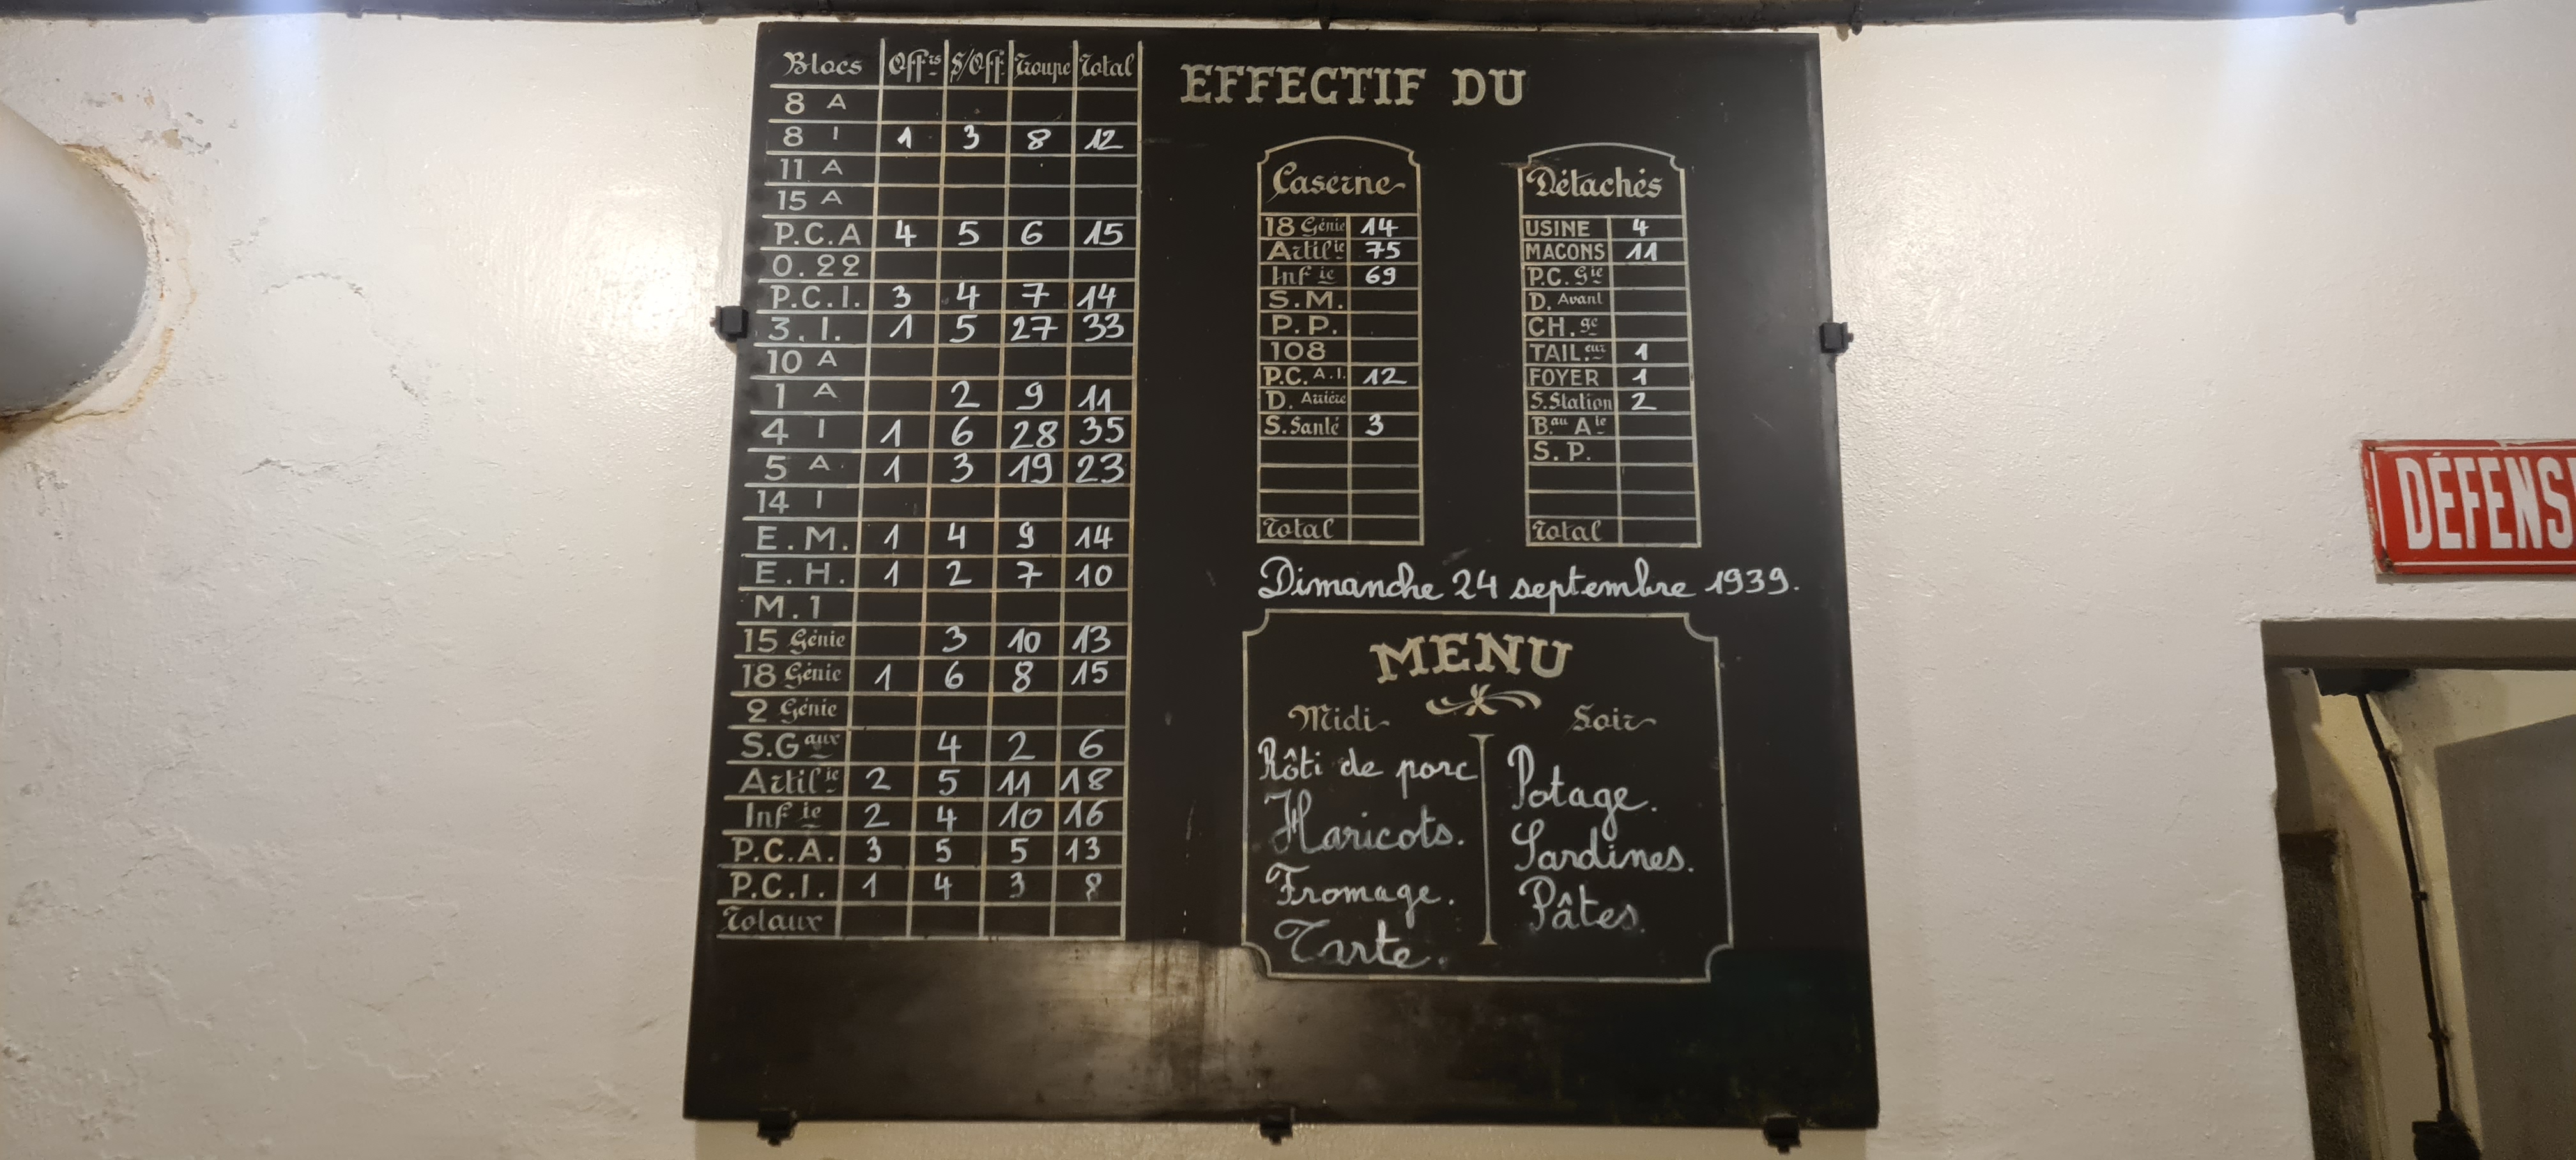 Blocs Offrs S/Off Troupe Total
8 A
8 I 1 3 8 12
11 A
15 A
P.C.A 4 5 6 15
O.22
P.C.I. 3 4 7 14
3.I. 1 5 27 33
10 A
1 A 2 9 11
4 I 1 6 28 35
5 A. 1 3 19 23
14 I
E.M. 1 4 9 14
E.H. 1 2 7 10
M.1
15 Génie 3 10 13
18 Génie 1 6 8 15
2 Génie
S.Gaux 4 2 6
Artilie 2 5 11 18
Infie 2 4 10 16
P.C.A. 3 5 5 13
P.C.I. 1 4 3 8
Totaux
EFFECTIF DU
Caserne
18 Génie 14
Artilie 75
Infie 69
S.M.
P.P.
108
P.C. A.I. 12
D. Arrière
S.Santé 3
Total
Détachés
USINE 4
MACONS 11
P.C. Gie
D. Avant
CH.ge
TAIL.eur 1
FOYER 1
S.Station 2
B.au Aie
S.P.
Total
Dimanche 24 septembre 1939.
MENU
Midi
Rôti de porc
Haricots.
Fromage.
Tarte.
Soir
Potage.
Sardines.
Pâtes.
DÉFENS